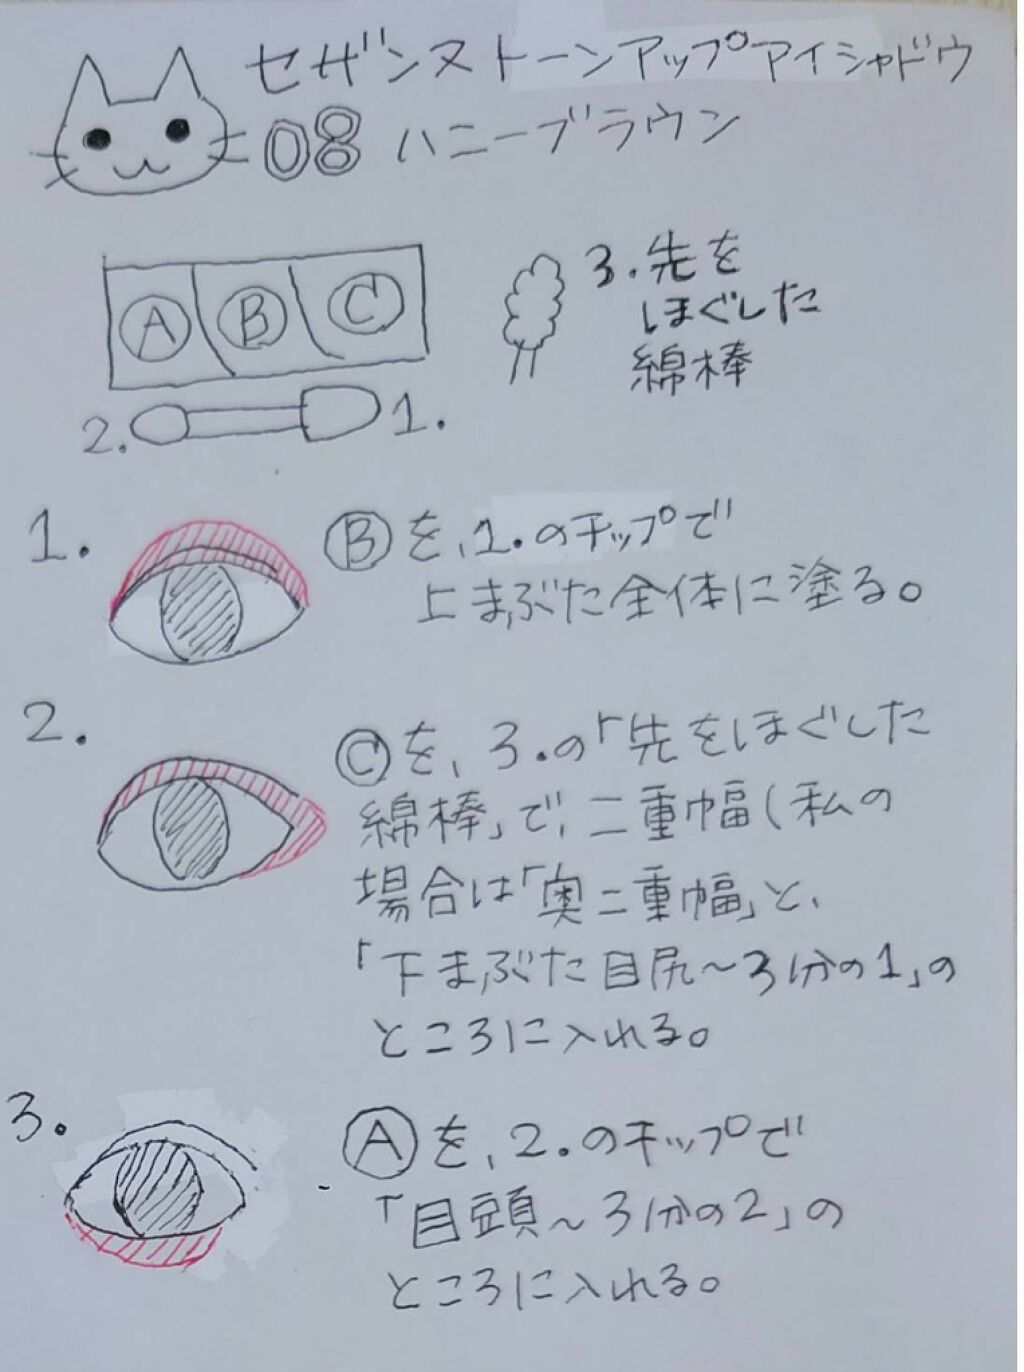 セザンヌトーンアップアイシャドウ
08 ハニーブラウン
A B C
3.先を
ほぐした
綿棒
2. 1.
1. Ⓑを、1.のチップで
上まぶた全体に塗る。
2. Ⓒを、3.の「先をほぐした
綿棒」で、二重幅(私の
場合は「奥二重幅」と、
「下まぶた目尻〜3分の1」の
ところに入れる。
3. Ⓐを、2.のチップで
「目頭〜3分の2」の
ところに入れる。